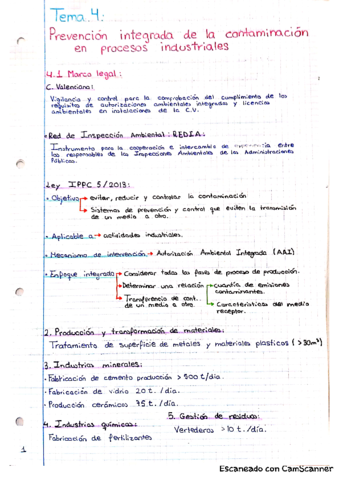 Tema 4:
Prevención integrada de la contaminación
en procesos industriales
4.1 Marco legal:
C. Valenciana:
Vigilancia y control para la comprobación del cumplimiento de los
requisitos de autorizaciones ambientales integradas y licencias
ambientales en instalaciones de la C.V.
• Red de Inspección Ambiental: REDIA:
Instrumento para la cooperación e intercambio de entre
los responsables de las Inspecciones Ambientales de las Administraciones
Públicas.
Ley IPPC 5/2013:
• Objetivo → evitar, reducir y controlar la contaminación
→ Sistemas de prevención y control que eviten la transmisión
de un medio a otro.
• Aplicable a → actividades industriales.
• Mecanismo de intervención → Autorización Ambiental Integrada (AAI)
• Enfoque integrado → Considerar todas las fases de proceso de producción.
→ Determinar una relación → cuantía de emisiones
contaminantes.
→ Transferencia de cont.
de un medio a otro.
→ Características del medio
receptor.
2. Producción y transformación de materiales:
Tratamiento de superficie de metales y materiales plásticos (>30m³)
3. Industrias minerales:
• Fabricación de cemento producción >500 t/día.
• Fabricación de vidrio 20 t./día.
• Producción cerámicos 75 t./día.
4. Industrias químicas:
Fabricación de fertilizantes
5. Gestión de residuos:
Vertederos >10 t./día.
1
Escaneado con CamScanner